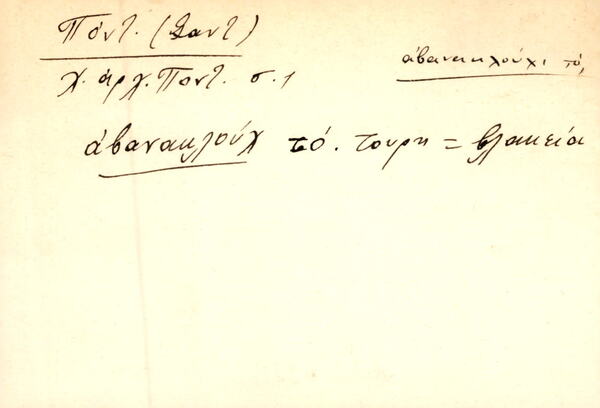 Πόντ. (Σαντ)
χ. ἀρχ. Ποντ. σ. 1
ἀβανακλούχι τό,
ἀβανακλούχ τό. τουρκ = βλακεία